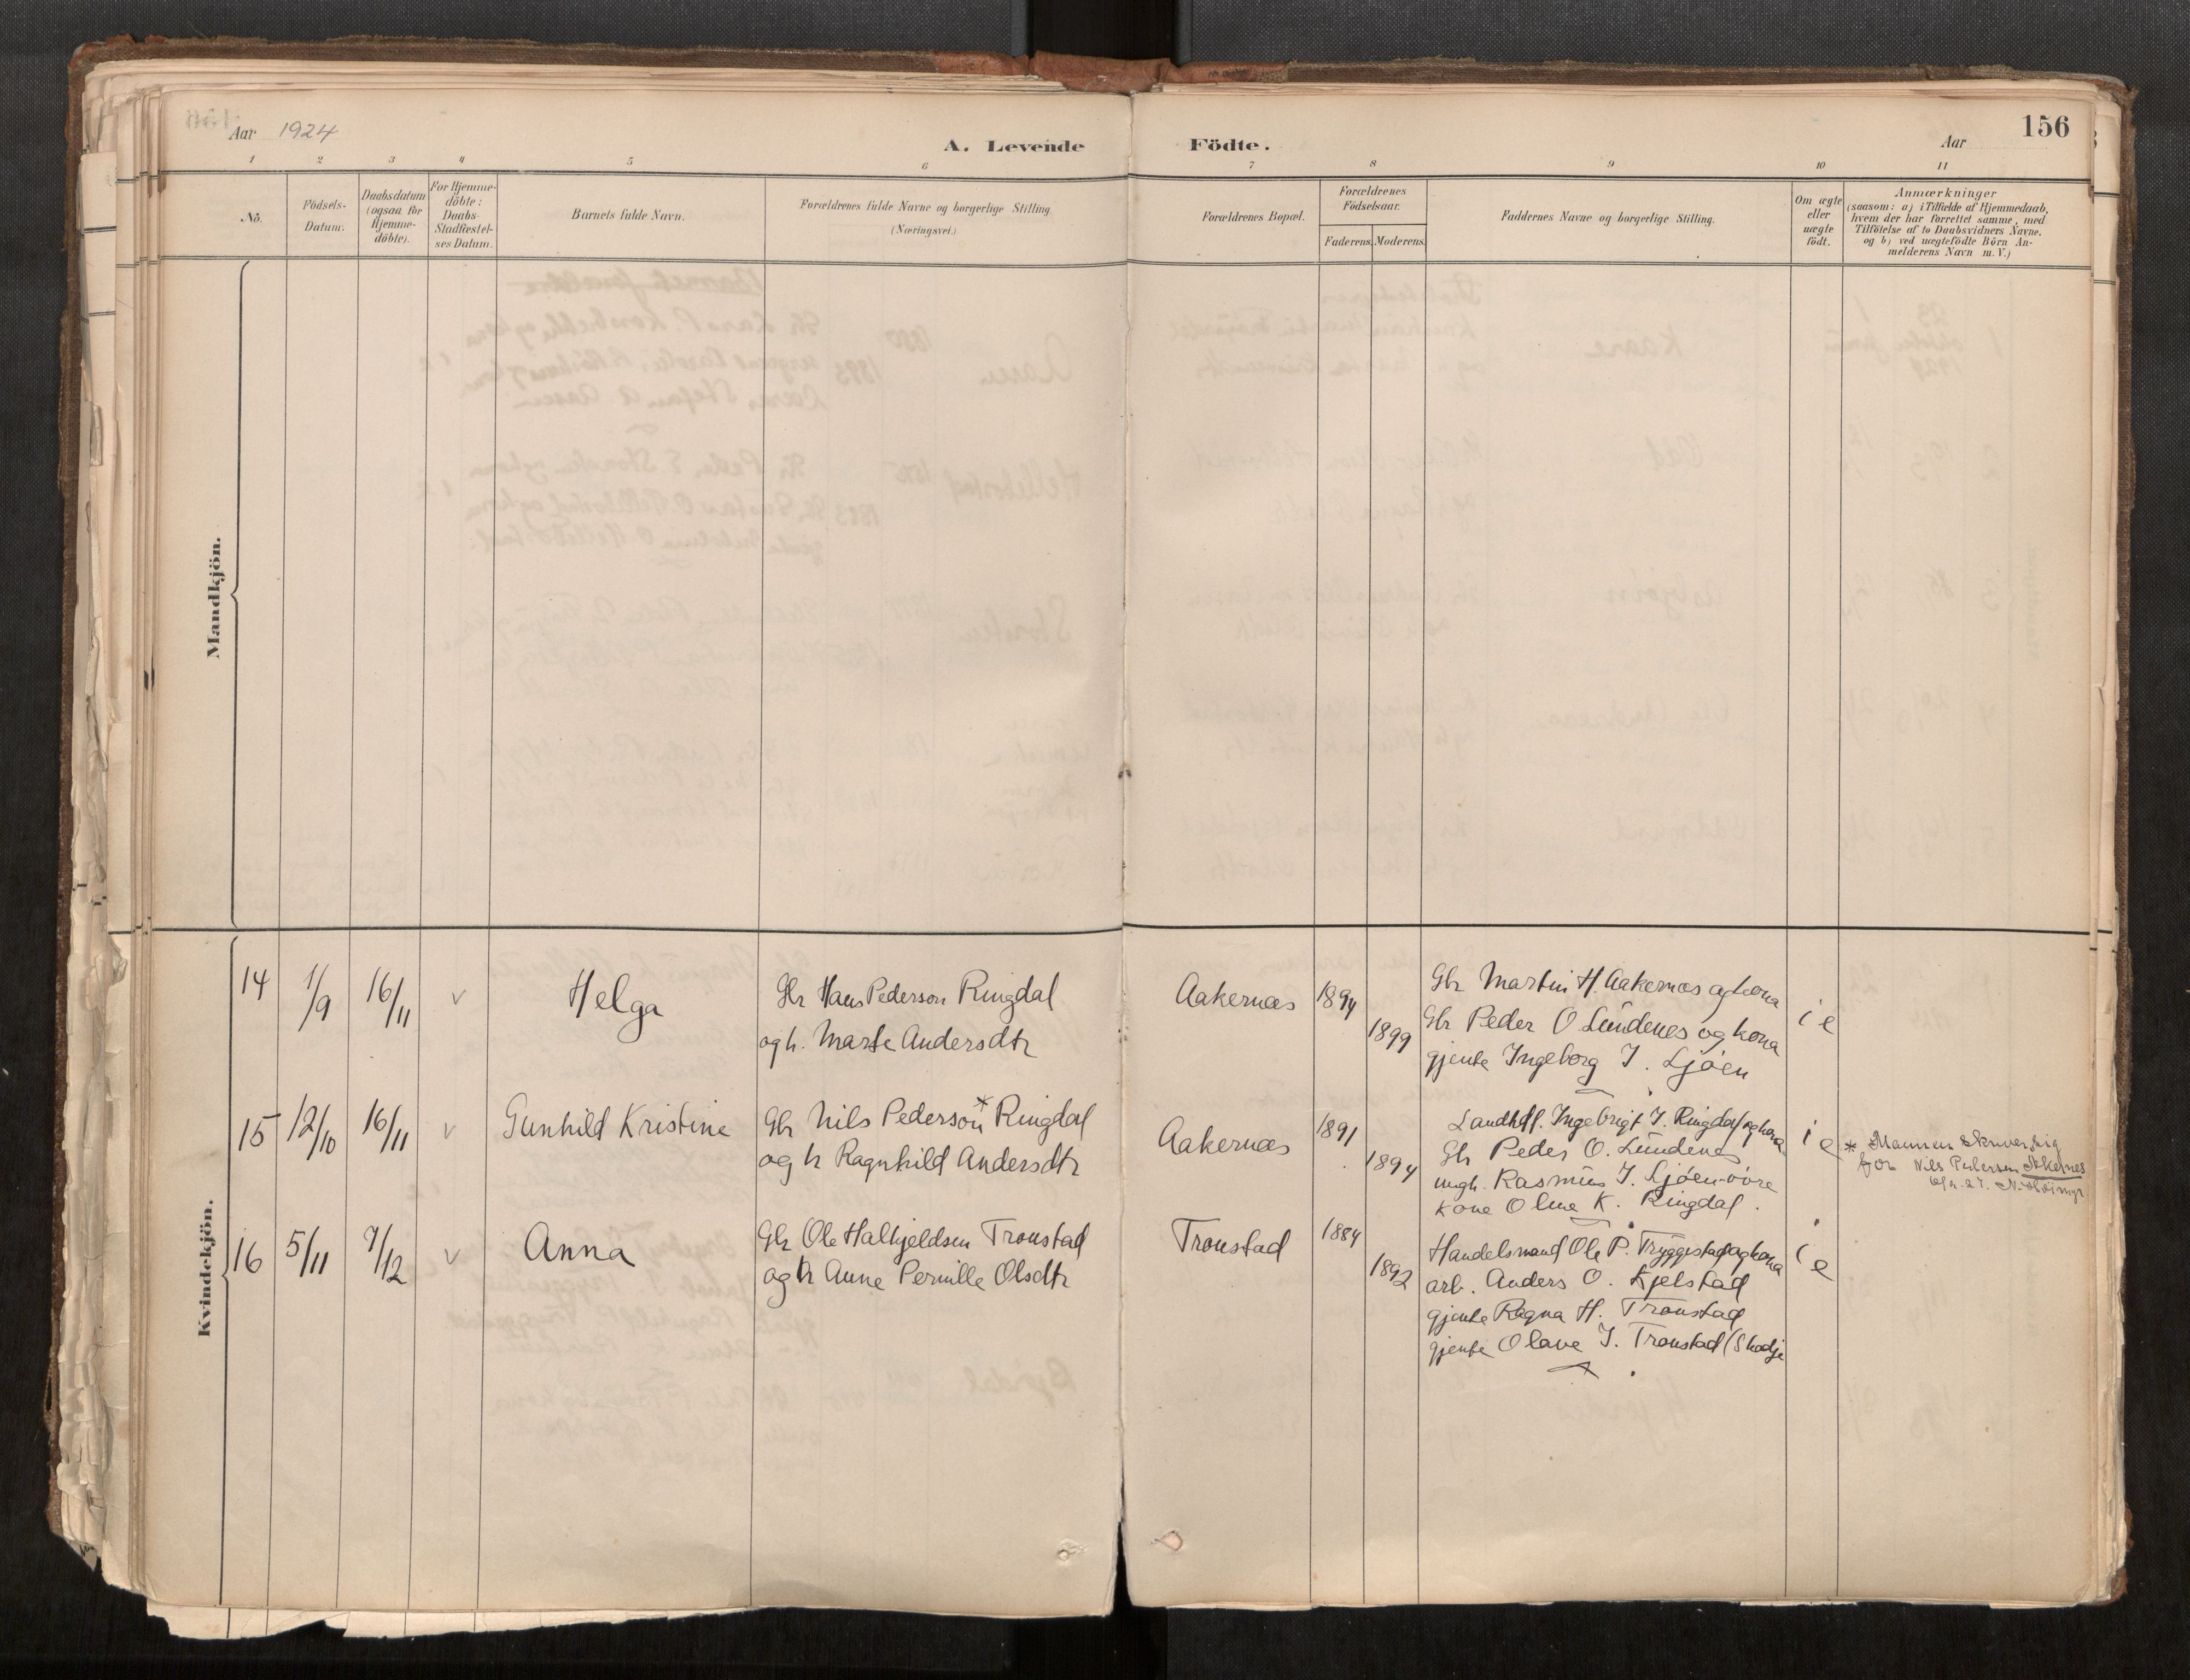 156
Aar 1924
A. Levende Födte.
Aar
1 2 3 4 5 6 7 8 9 10 11
Nô.
Födsels-
Datum.
Daabsdatum
(ogsaa for
Hjemme-
döbte).
For Hjemme-
döbte:
Daabs-
Stadfæstel-
ses Datum.
Barnets fulde Navn.
Forældrenes fulde Navne og borgerlige Stilling.
(Næringsvei.)
Forældrenes Bopæl.
Forældrenes
Födselsaar.
Faderens. Moderens.
Faddernes Navne og borgerlige Stilling.
Om ægte
eller
uægte
födt.
Anmærkninger
(saasom: a) i Tilfælde af Hjemmedaab,
hvem der har forrettet samme, med
Tilföielse af to Daabsvidners Navne.
og b) ved uægtefödte Börn An-
melderens Navn m.V.)
Mandkjön.
Kvindekjön.
14 1/9 16/11 v Helga
Gbr Hans Pederson Ringdal
og h. Marte Andersdtr
Aakernæs 1894
1899
Gbr Martin H. Aakernæs og kona
Gbr Peder O Lundenes og kona
gjente Ingeborg I. Ljøen
i e
15 12/10 16/11 v Gunhild Kristine
Gbr Nils Pederson* Ringdal
og h Ragnhild Andersdtr
Aakernæs 1891
1894
Landhdl. Ingebrigt I. Ringdal og kona
Gbr Peder O. Lundenes
ungk. Rasmus I. Ljøen-øvre
kone Oline K. Ringdal.
i e
* Mannen skriver sig
for Nils Pedersen Akernes
16 5/11 7/12 v Anna
Gbr Ole Halkjeldsen Tronstad
og h Anne Pernille Olsdtr
Tronstad 1884
1892
Handelsmand Ole P. Tryggestad og kona
arb. Anders O. Kjelstad
gjente Ragna H. Tronstad
gjente Olave I. Tronstad (Skodje
i e